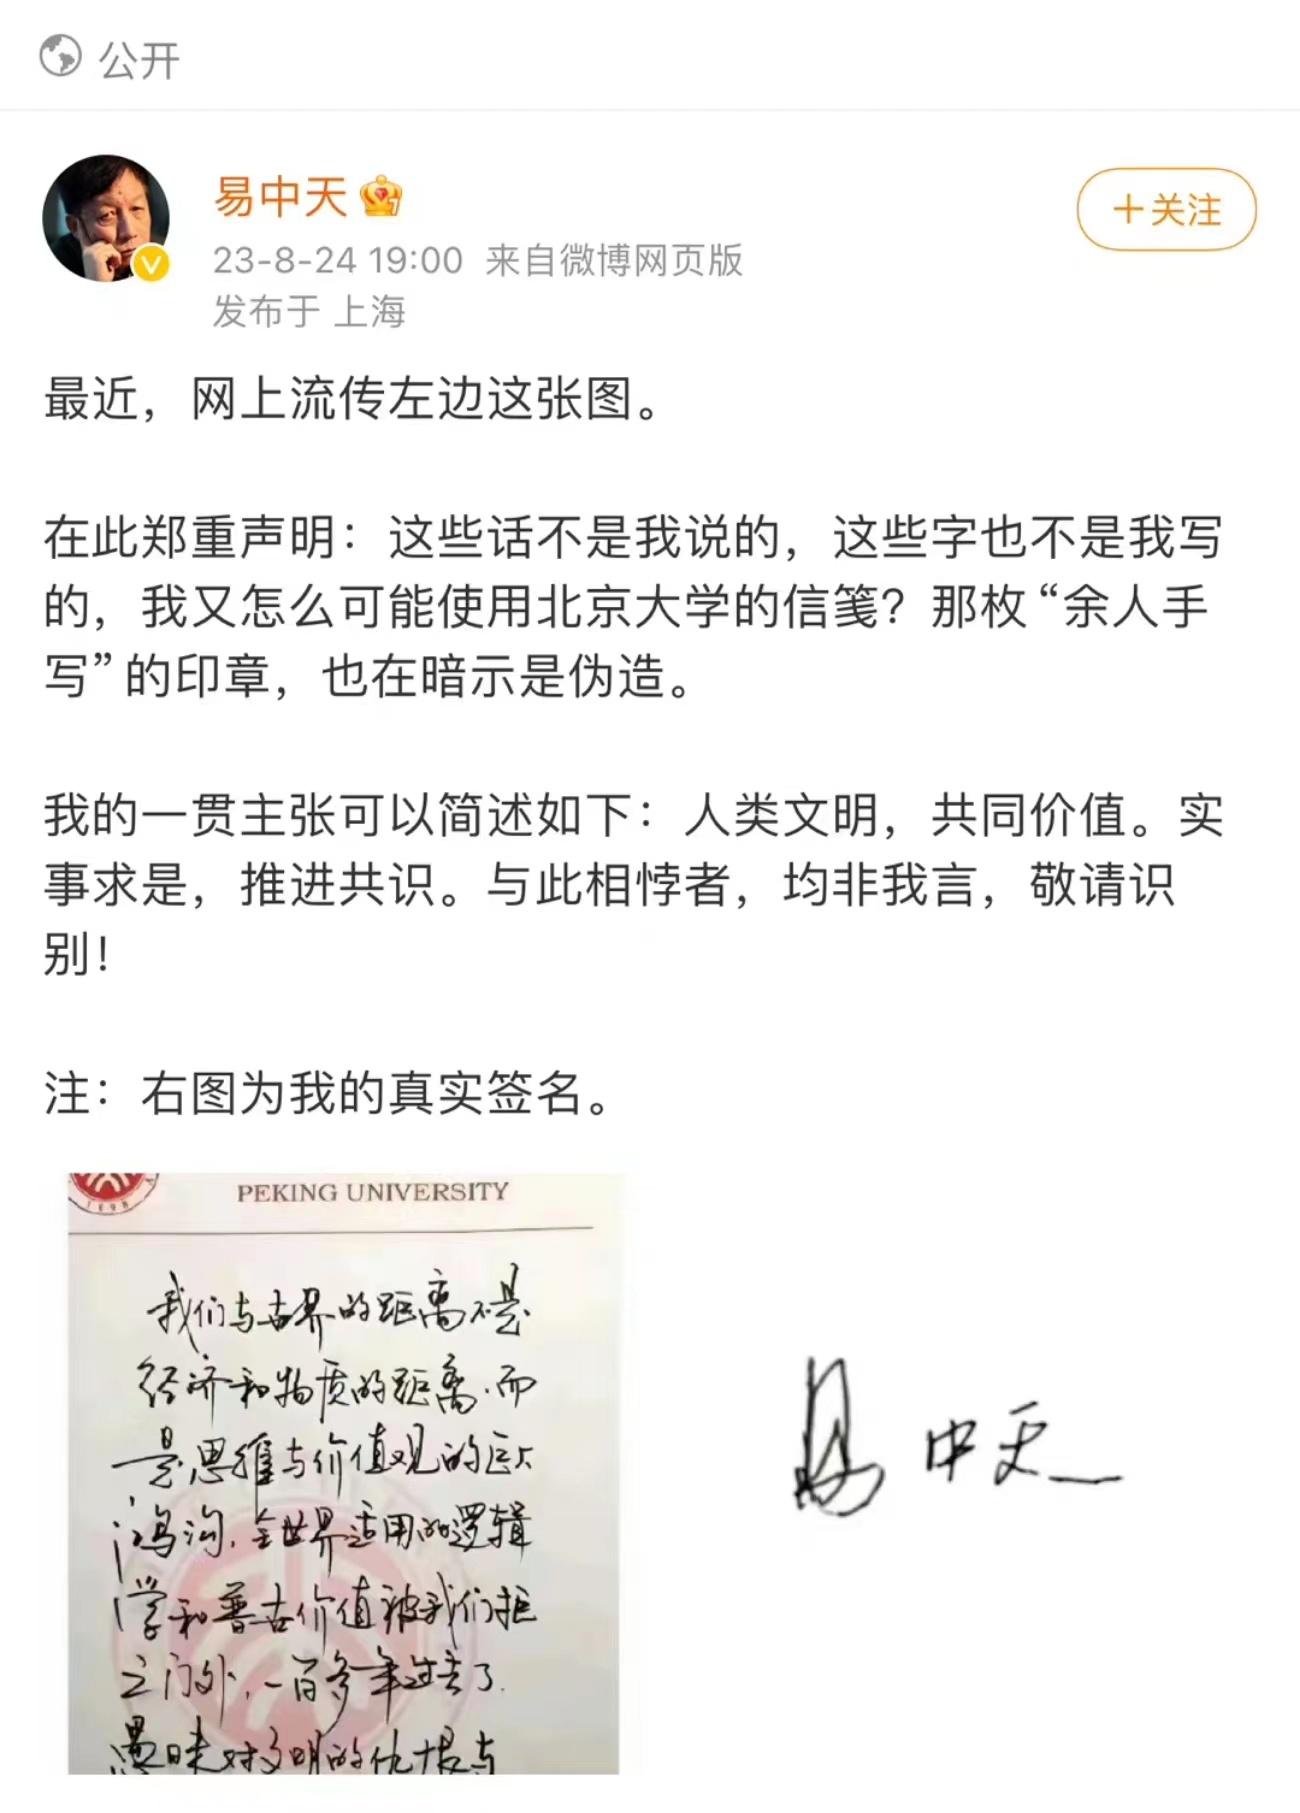 公开
易中天
+关注
23-8-24 19:00 来自微博网页版
发布于 上海
最近，网上流传左边这张图。
在此郑重声明：这些话不是我说的，这些字也不是我写
的，我又怎么可能使用北京大学的信笺？那枚“余人手
写”的印章，也在暗示是伪造。
我的一贯主张可以简述如下：人类文明，共同价值。实
事求是，推进共识。与此相悖者，均非我言，敬请识
别！
注：右图为我的真实签名。
1898
PEKING UNIVERSITY
我们与世界的距离不是
经济和物质的距离.而
是思维与价值观的巨大
鸿沟.全世界适用的逻辑
学和普世价值被我们拒
之门外.一百多年过去了.
愚昧对文明的仇恨与
易中天